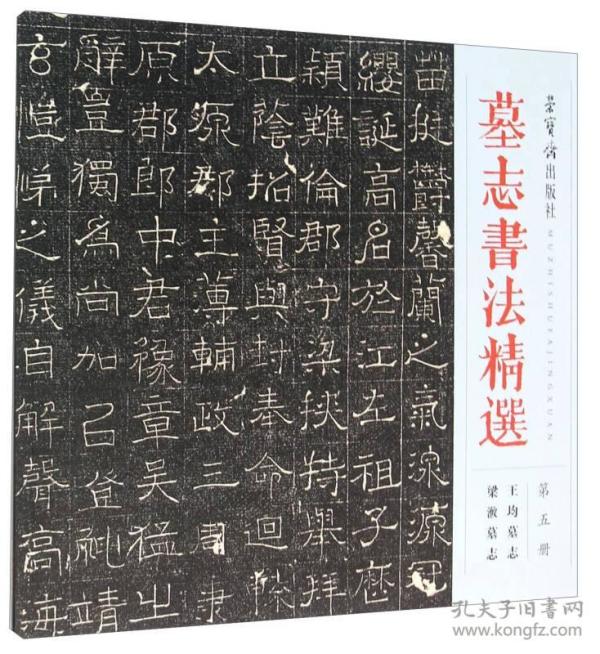 榮寶齋出版社
墓志書法精選
MUZHISHUFAJINGXUAN
第五册
王均墓志
梁瓌墓志
苗挺欝馨蘭之氣深源冠
纓誕高名於江左祖子歷
穎難倫郡守梁挾特舉拜
立蔭招賢與封奉命迴
太源郡主薄輔政三周
原郡郎中君豫章吴猛出
辭豈獨為尚加召登
言愷悌之儀自解聲高海
孔夫子旧書网
www.kongfz.com